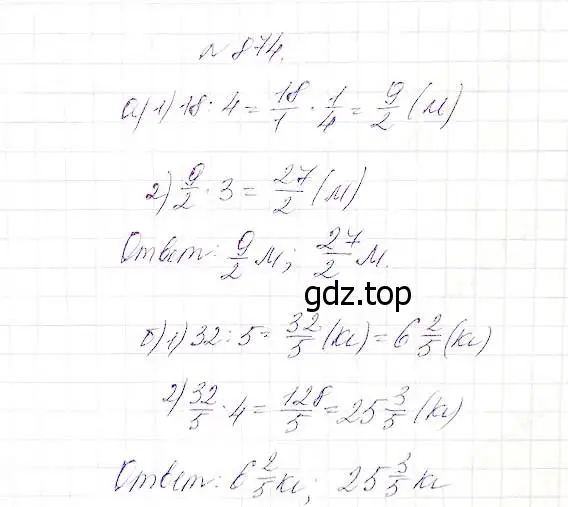 № 874.
а) 1) 18 · 4 = 18/1 · 1/4 = 9/2 (м)
2) 9/2 · 3 = 27/2 (м)
Ответ: 9/2 м; 27/2 м.
gdz.top
б) 1) 32 : 5 = 32/5 (кг) = 6 2/5 (кг)
2) 32/5 · 4 = 128/5 = 25 3/5 (кг)
Ответ: 6 2/5 кг; 25 3/5 кг